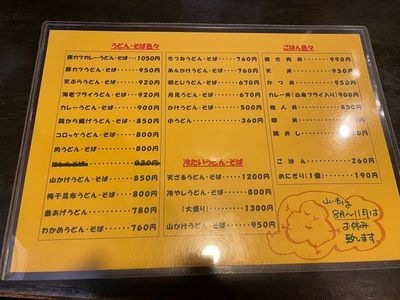 うどん・そば色々
豚カツカレーうどん・そば・・・1050円
豚カツうどん・そば・・・・・950円
天ぷらうどん・そば・・・・・920円
海老フライうどん・そば・・・950円
カレーうどん・そば・・・・・900円
鶏から揚げうどん・そば・・・850円
コロッケうどん・そば・・・・800円
肉うどん・そば・・・・・・・800円
山かけうどん・そば・・・・・850円
梅干昆布うどん・そば・・・・800円
釜あげうどん・・・・・・・・780円
わかめうどん・そば・・・・・760円
きつねうどん・そば・・・・760円
あんかけうどん・そば・・・760円
卵とじうどん・そば・・・・760円
月見うどん・そば・・・・・670円
かけうどん・そば・・・・・500円
小うどん・・・・・・・・・360円
冷たいうどん・そば
天ざるうどん・そば・・・・1200円
冷やしうどん・そば・・・・・800円
(大盛り)・・・・1300円
山かけうどん・そば・・・・950円
ごはん色々
焼き肉丼・・・・・・・990円
天丼・・・・・・・・・950円
かつ丼・・・・・・・・900円
カレー丼(白身フライ入り)900円
他人丼・・・・・・・・850円
卵丼
鶏めし
ごはん・・・・・・・・260円
おにぎり(1個)・・・・190円
山いもは
8月~11月は
お休み
致します